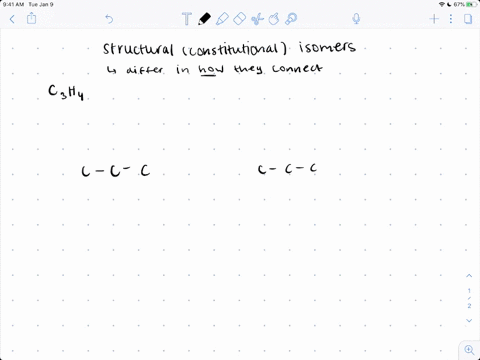 9:41 AM Tue Jan 9
67%
structural (constitutional) isomers
↳ differ in how they connect
C₃H₄
C - C - C
C - C - C
1
/
2